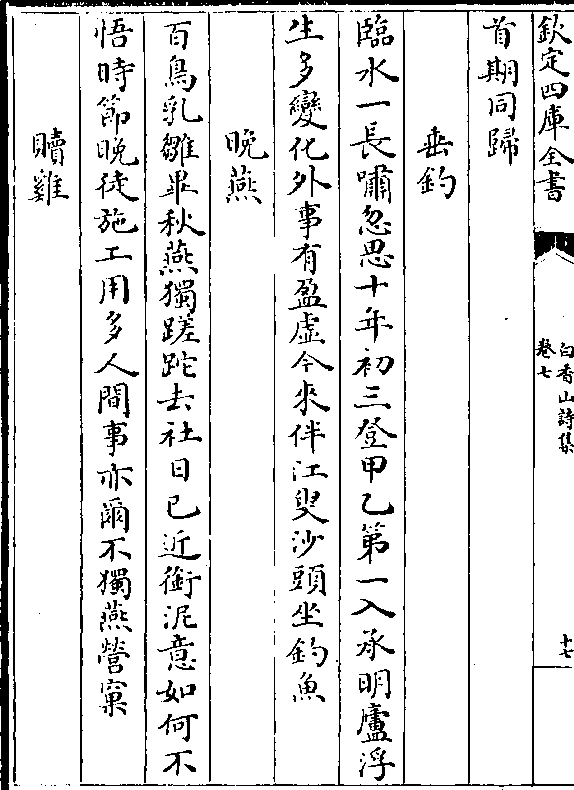 欽定四庫全書
白香山詩集
卷七
十七
首期同歸
垂釣
臨水一長嘯忽思十年初三登甲乙第一入承明廬浮
生多變化外事有盈虛今來伴江叟沙頭坐釣魚
晚燕
百鳥乳雛畢秋燕獨蹉跎去社日已近銜泥意如何不
悟時節晚徒施工用多人間事亦爾不獨燕營窠
贖雞